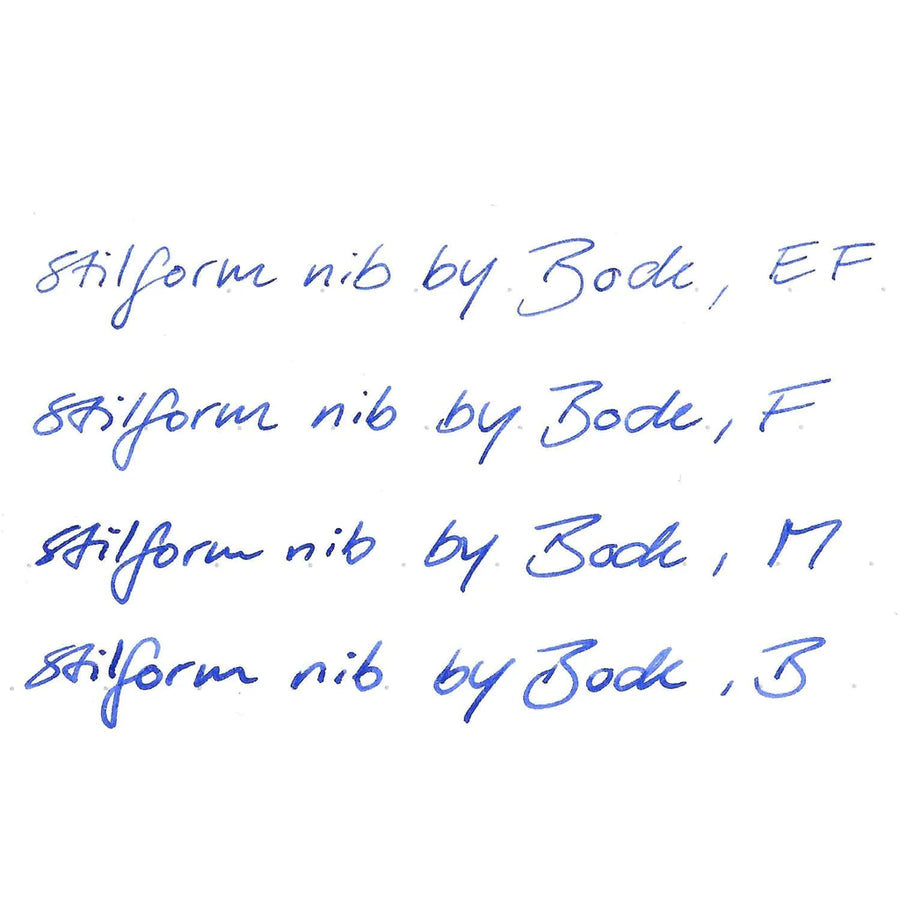 stilform nib by Bode, EF
stilform nib by Bode, F
stilform nib by Bode, M
stilform nib by Bode, B